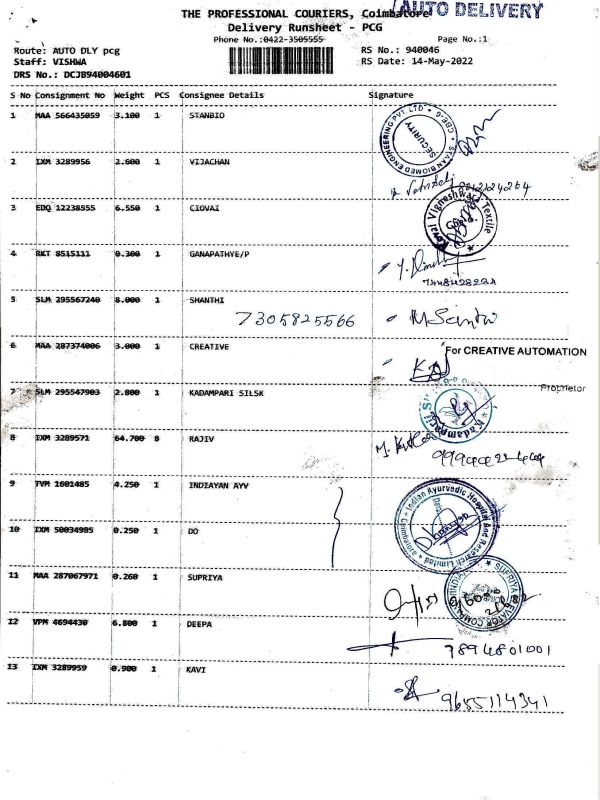 AUTO DELIVERY
THE PROFESSIONAL COURIERS, Coimbatore
Delivery Runsheet - PCG
Phone No.:0422-3505555 Page No.:1
Route: AUTO DLY pcg RS No.: 940046
Staff: VISHWA RS Date: 14-May-2022
DRS No.: DCJB94004601
S No Consignment No Weight PCS Consignee Details Signature
1 MAA 566435059 3.100 1 STANBIO
SECURITY
2 IXM 3289956 2.600 1 VIJACHAN
3 EDQ 12238555 6.550 1 CIOVAI
Vigneshwara Textile
4 RKT 8515111 0.300 1 GANAPATHYE/P
5 SLM 295567240 8.000 1 SHANTHI
7305825566
6 MAA 287374006 3.000 1 CREATIVE
For CREATIVE AUTOMATION
Proprietor
7 SLM 295547903 2.800 1 KADAMPARI SILSK
8 IXM 3289571 64.700 8 RAJIV
9 TVM 1601485 4.250 1 INDIAYAN AYV
Indian Ayurvedic Hospital And Research Limited
10 IXM 50034985 0.250 1 DO
11 MAA 287067971 0.260 1 SUPRIYA
12 VPM 4694430 6.800 1 DEEPA
9894801001
13 IXM 3289959 0.900 1 KAVI
9655114341